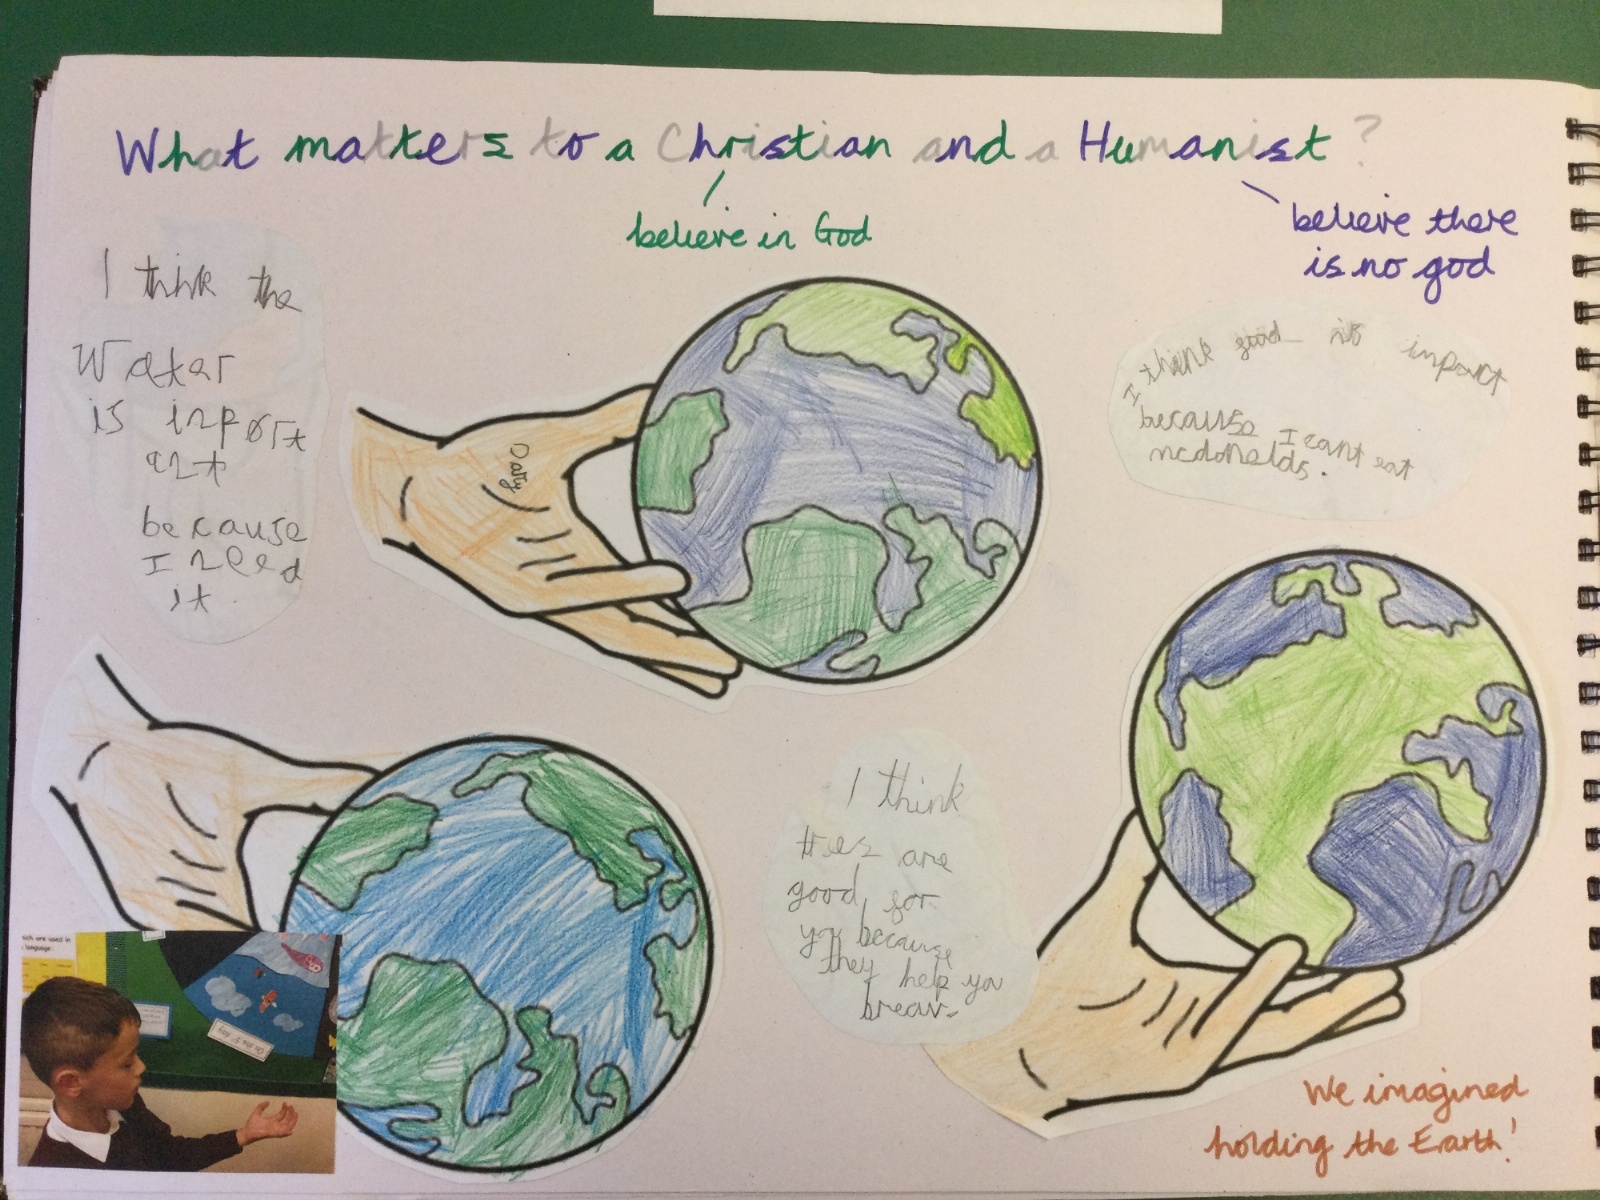 What matters to a Christian and a Humanist ?
believe in God
believe there
is no god
I think the
Water
is inport
ant
because
I need
it.
I think good is inpourt
because I cant eat
mcdonelds.
Daffy
I think
trees are
good for
you because
they help you
breav-
We imagined
holding the Earth!
ich are used in
language:
On the 5th day